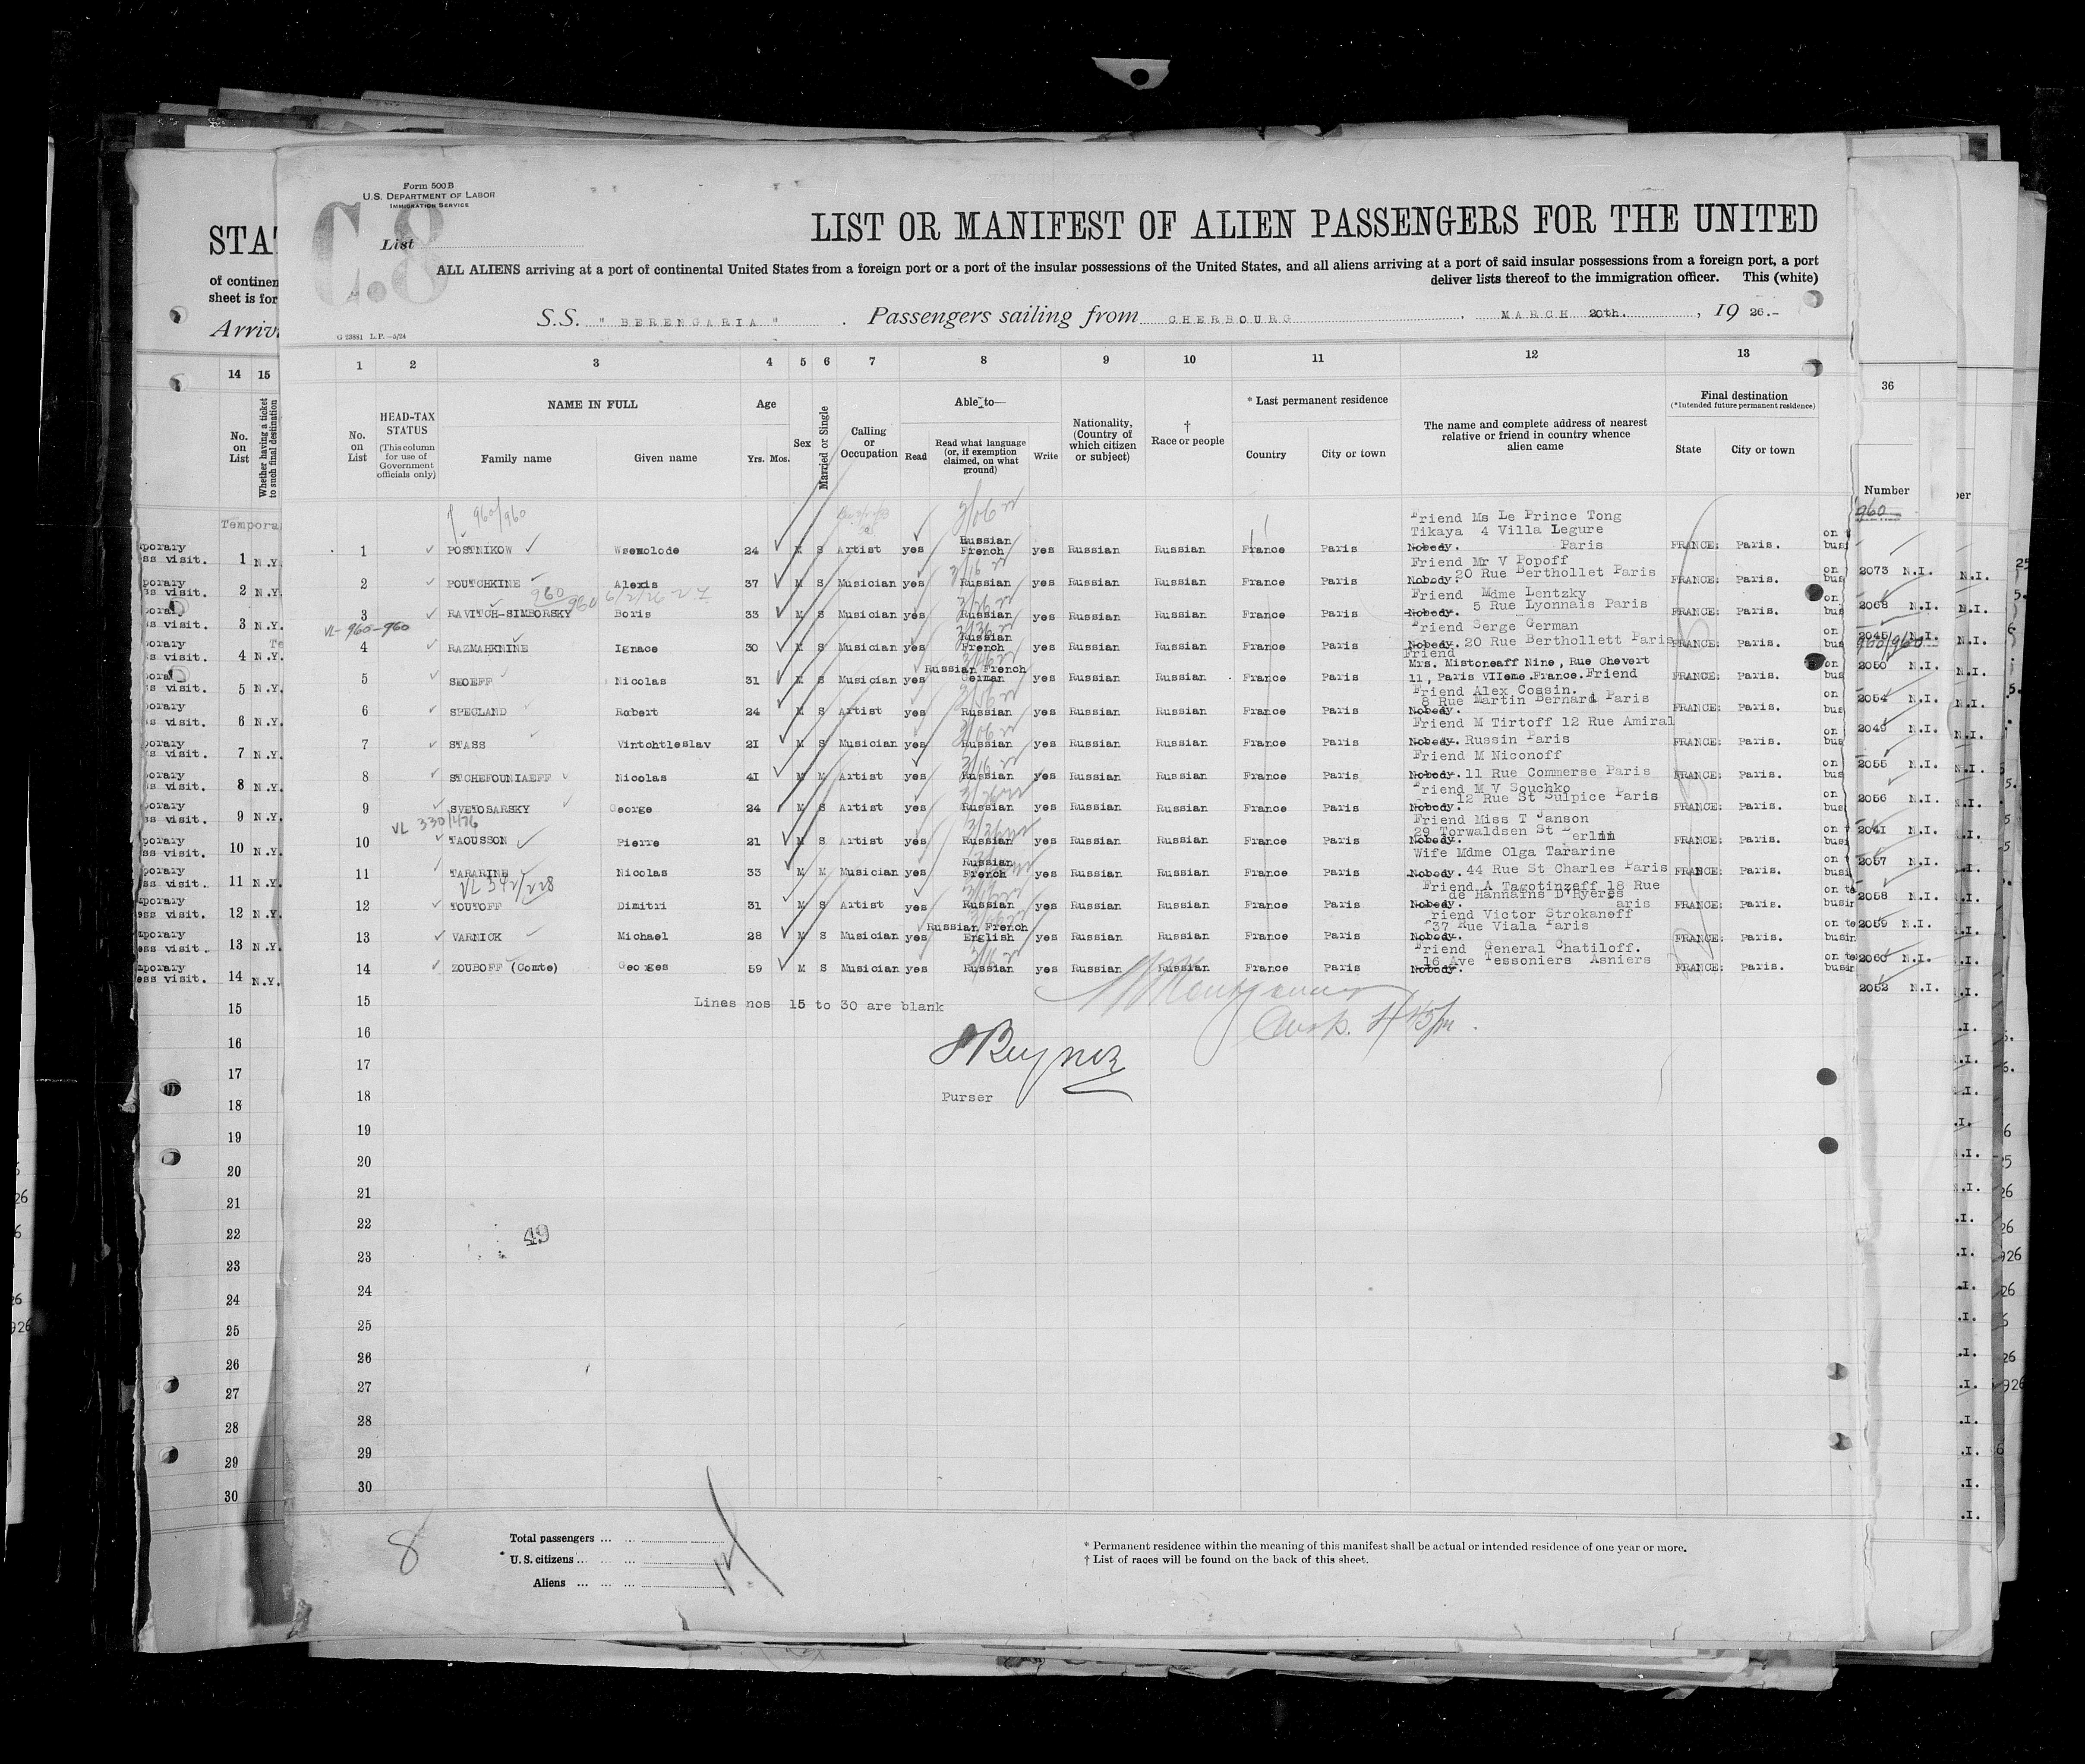 Form 500B
U.S. DEPARTMENT OF LABOR
IMMIGRATION SERVICE
C.8
List
LIST OR MANIFEST OF ALIEN PASSENGERS FOR THE UNITED
ALL ALIENS arriving at a port of continental United States from a foreign port or a port of the insular possessions of the United States, and all aliens arriving at a port of said insular possessions from a foreign port, a port
deliver lists thereof to the immigration officer. This (white)
S.S. "BERENGARIA". Passengers sailing from CHERBOURG, MARCH 20th., 1926.-
G 23881 L.P.—5/24
1 2 3 4 5 6 7 8 9 10 11 12 13
No. on List
HEAD-TAX STATUS (This column for use of Government officials only)
NAME IN FULL
Family name Given name
Age
Yrs. Mos.
Sex
Married or Single
Calling or Occupation
Able to—
Read
Read what language (or, if exemption claimed, on what ground)
Write
Nationality, (Country of which citizen or subject)
† Race or people
* Last permanent residence
Country City or town
The name and complete address of nearest relative or friend in country whence alien came
Final destination
(*Intended future permanent residence)
State City or town
960/960
1 POSTNIKOW Wsewolode 24 M S Artist yes Russian French yes Russian Russian France Paris Friend Ms Le Prince Tong Tikaya 4 Villa Legure Nobody. Paris FRANCE: Paris.
2 POUTCHKINE Alexis 37 M S Musician yes Russian yes Russian Russian France Paris Friend Mr V Popoff Nobody. 20 Rue Berthollet Paris FRANCE: Paris.
960 960 6/2/26
3 RAVITCH-SIMBORSKY Boris 33 M S Musician yes Russian yes Russian Russian France Paris Friend Mdme Lentzky Nobody. 5 Rue Lyonnais Paris FRANCE: Paris.
VL-960-960
4 RAZMAHNINE Ignace 30 M S Musician yes Russian French yes Russian Russian France Paris Friend Serge German Nobody. 20 Rue Berthollett Paris FRANCE: Paris.
5 SEOEFF Nicolas 31 M S Musician yes Russian French German yes Russian Russian France Paris Friend Mrs. Mistoneaff Nine, Rue Chevert 11, Paris VIIeme.France.Friend FRANCE: Paris.
6 SPECLAND Robert 24 M S Artist yes Russian yes Russian Russian France Paris Friend Alex Cossin. 8 Rue Martin Bernard Paris Nobody. FRANCE: Paris.
7 STASS Vintchtleslav 21 M S Musician yes Russian yes Russian Russian France Paris Friend M Tirtoff 12 Rue Amiral Nobody. Russin Paris FRANCE: Paris.
8 STCHEFOUNIAEFF Nicolas 41 M M Artist yes Russian yes Russian Russian France Paris Friend M Niconoff Nobody. 11 Rue Commerse Paris FRANCE: Paris.
9 SVETOSARSKY George 24 M S Artist yes Russian yes Russian Russian France Paris Friend M V Souchko Nobody. 12 Rue St Sulpice Paris FRANCE: Paris.
VL 330/476
10 TAOUSSON Pierre 21 M S Artist yes Russian yes Russian Russian France Paris Friend Miss T Janson 29 Torwaldsen St Berlin Nobody. FRANCE: Paris.
11 TARARINE Nicolas 33 M M Musician yes Russian French yes Russian Russian France Paris Wife Mdme Olga Tararine Nobody. 44 Rue St Charles Paris FRANCE: Paris.
12 TOUTOFF Dimitri 31 M S Artist yes Russian yes Russian Russian France Paris Friend A Tagotinzeff 18 Rue de Hannafns D'Hyeres Nobody. aris FRANCE: Paris.
13 VARNICK Michael 28 M S Musician yes Russian French English yes Russian Russian France Paris riend Victor Strokanoff 37 Rue Viala Paris Nobody. FRANCE: Paris.
14 ZOUBOFF (Comte) Georges 59 M S Musician yes Russian yes Russian Russian France Paris Friend General Chatiloff. 16 Ave Tessoniers Asniers Nobody. FRANCE: Paris.
15 Lines nos 15 to 30 are blank
16
17
18 Purser
19
20
21
22
23
24
25
26
27
28
29
30
49
8
Total passengers
U.S. citizens
Aliens
14
* Permanent residence within the meaning of this manifest shall be actual or intended residence of one year or more.
† List of races will be found on the back of this sheet.
STAT
of continen
sheet is for
Arriv
14 15
No. on List
Whether having a ticket to such final destination
Tempora
1 N.Y.
2 N.Y.
3 N.Y.
4 N.Y.
5 N.Y.
6 N.Y.
7 N.Y.
8 N.Y.
9 N.Y.
10 N.Y.
11 N.Y.
12 N.Y.
13 N.Y.
14 N.Y.
15
16
17
18
19
20
21
22
23
24
25
26
27
28
29
30
36
Number
960
2073 N.I.
2068 N.I.
2045 N.I.
960/960
2050 N.I.
2054 N.I.
2049 N.I.
2055 N.I.
2056 N.I.
2041 N.I.
2057 N.I.
2058 N.I.
2059 N.I.
2060 N.I.
2052 N.I.